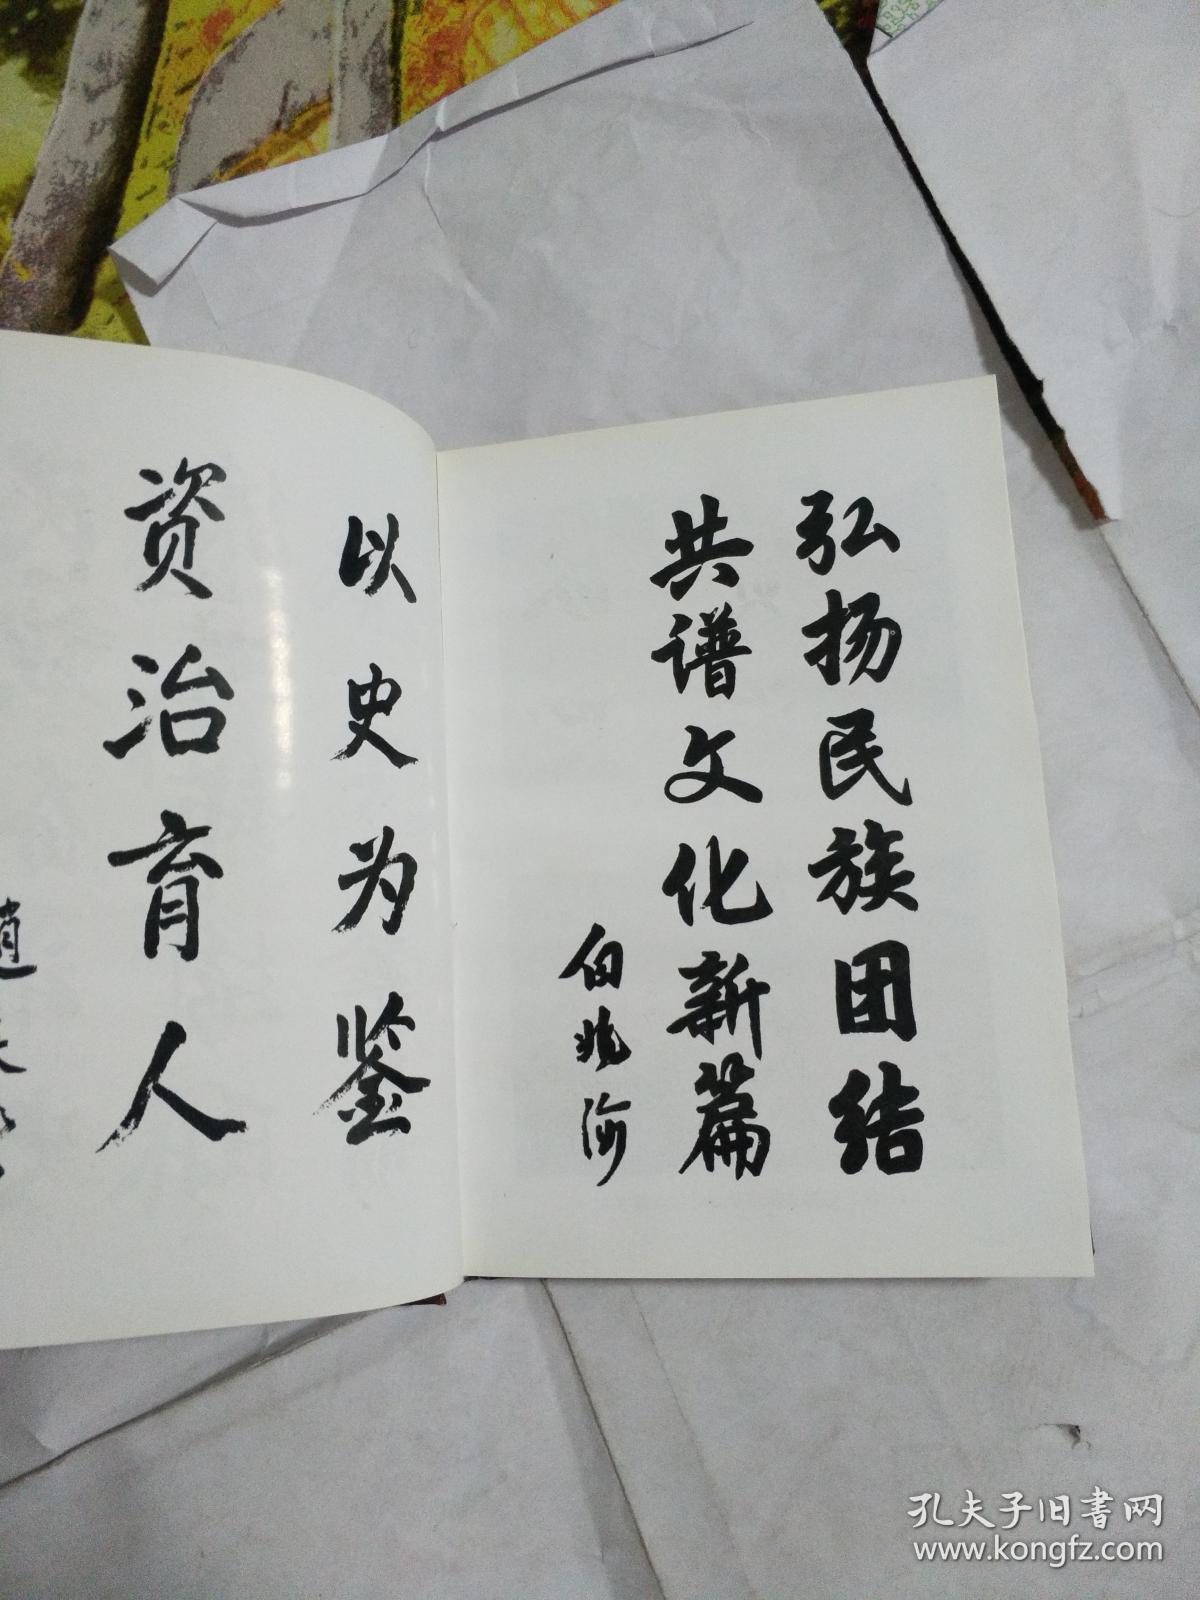 弘扬民族团结
共谱文化新篇
以史为鉴
资治育人
孔夫子旧书网
www.kongfz.com